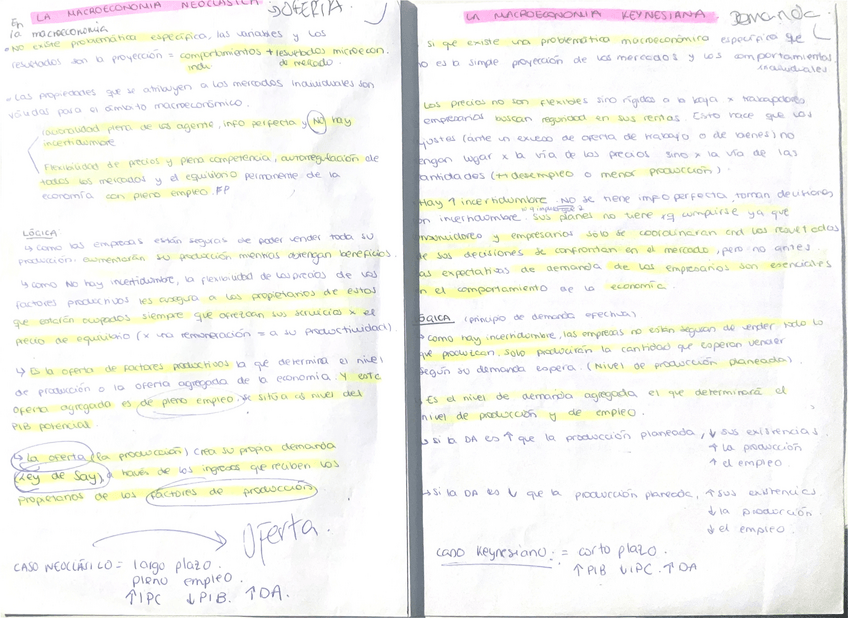 LA MACROECONOMIA NEOCLÁSICA → OFERTA.
En
la macroeconomía
• No existe problemática específica, las variables y los
resultados son la proyección = comportamientos + resultados microecon.
indiv. de mercado.
• Las propiedades que se atribuyen a los mercados individuales son
válidas para el ámbito macroeconómico.
racionalidad plena de los agente, info perfecta y NO hay
incertidumbre
Flexibilidad de precios y plena competencia, autorregulación de
todos los mercados y el equilibrio permanente de la
economía con pleno empleo. FP
LÓGICA:
↳ Como las empresas están seguras de poder vender toda su
producción: aumentarán su producción mientras obtengan beneficios.
↳ y como No hay incertidumbre, la flexibilidad de los precios de los
factores productivos les asegura a los propietarios de estos
que estarán ocupados siempre que ofrezcan sus servicios x el
precio de equilibrio (x una remuneración = a su productividad).
↳ Es la oferta de factores productivos la que determina el nivel
de producción o la oferta agregada de la economía. Y este
oferta agregada es de pleno empleo. Se sitúa es nivel del
PIB potencial.
↳ La oferta (la producción) crea su propia demanda
(Ley de Say), a través de los ingresos que reciben los
propietarios de los factores de producción
Oferta.
CASO NEOCLÁSICO = largo plazo.
pleno empleo.
↑IPC ↓PIB. ↑DA.
LA MACROECONOMIA KEYNESIANA Demanda
Si que existe una problemática macroeconómica específica que
no es la simple proyección de los mercados y los comportamientos
individuales
Los precios no son flexibles sino rígidos a la baja x trabajadores
empresarios buscan seguridad en sus rentas. Esto hace que los
ajustes (ante un exceso de oferta de trabajo o de bienes) no
tengan lugar x la vía de los precios sino x la vía de las
cantidades (++ desempleo o menor producción).
Hay ↑ incertidumbre. NO se tiene info perfecta, toman decisiones
en incertidumbre. Sus planes no tiene xq cumplirse ya que
consumidores y empresarios sólo se coordinaran cnd los resultados
de sus decisiones se confrontan en el mercado, pero no antes.
las expectativas de demanda de los empresarios son esenciales
en el comportamiento de la economía.
LÓGICA (principio de demanda efectiva)
→ Como hay incertidumbre, las empresas no están seguras de vender todo lo
que produzcan. Solo producirán la cantidad que esperan vender
según su demanda espera. (Nivel de producción planeada).
Es el nivel de demanda agregada el que determinará el
nivel de producción y de empleo.
→ Si la DA es ↑ que la producción planeada, ↓ sus existencias.
↑ la producción
↑ el empleo
→ Si la DA es ↓ que la producción planeada, ↑ sus existencias.
↓ la producción.
↓ el empleo.
caso Keynesiano: = corto plazo.
↑PIB ↓IPC. ↑DA